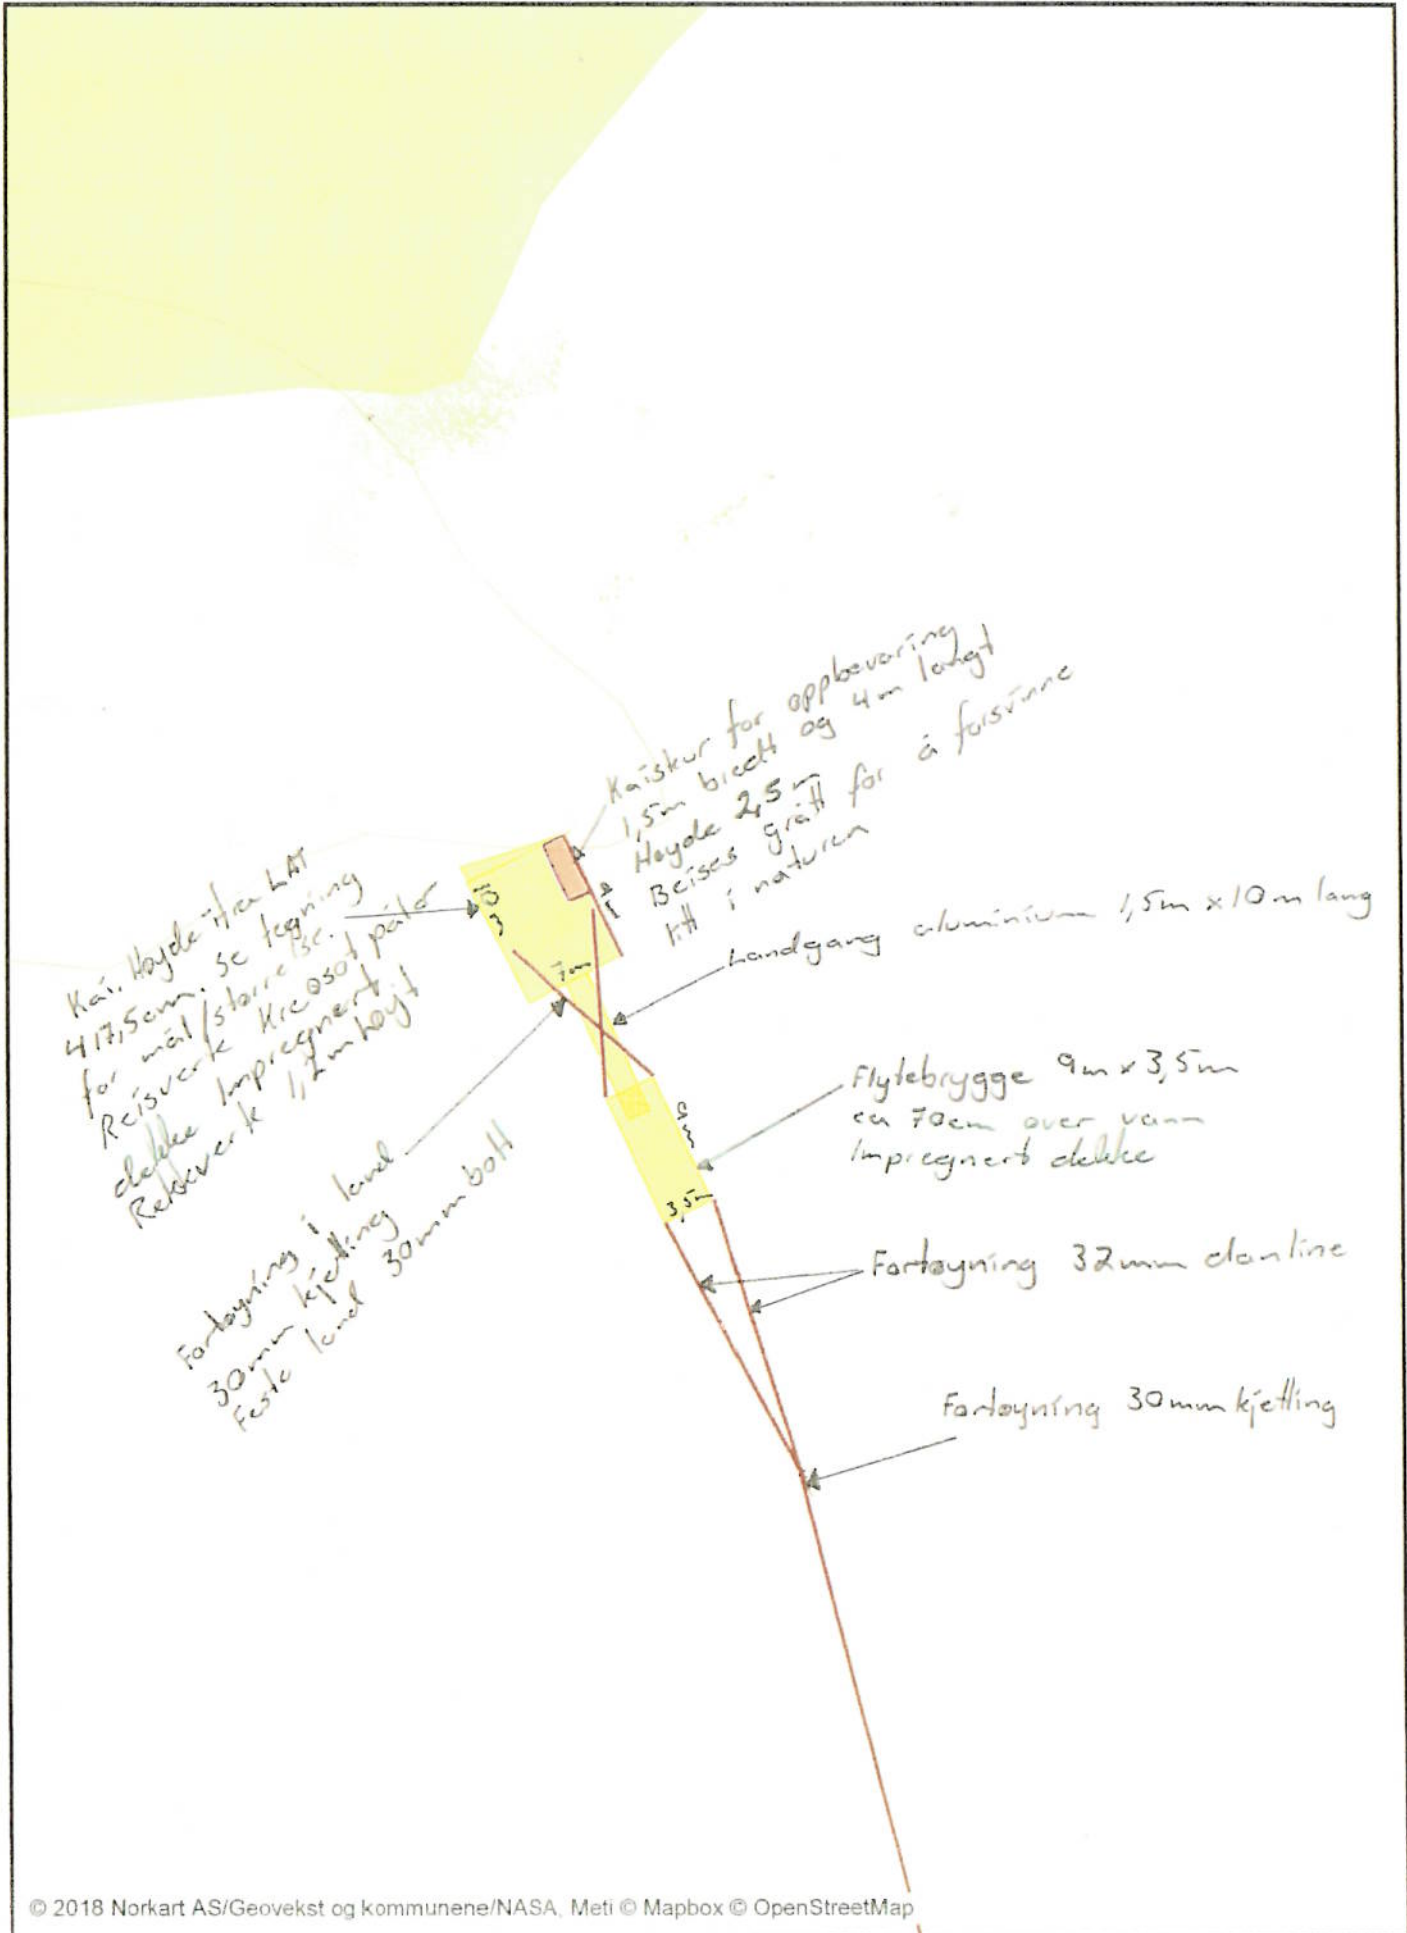 Kaiskur for oppbevaring
1,5m bredt og 4m langt
Høyde 2,5m
Beises grått for å forsvinne
litt i naturen
Kai. Høyde ifra LAT
417,5cm. se tegning
for mål/størrelse.
Reisverk Kreosot påler
dekke Impregnert
Rekkverk 1,2m høyt
10m
9m
7m
Landgang aluminium 1,5m x 10m lang
Flytebrygge 9m x 3,5m
ca 70cm over vann
Impregnert dekke
9m
3,5m
Fortøyning i land
30mm kjetting
Feste land 30mm bolt
Fortøyning 32mm danline
Fortøyning 30mm kjetting
© 2018 Norkart AS/Geovekst og kommunene/NASA, Meti © Mapbox © OpenStreetMap